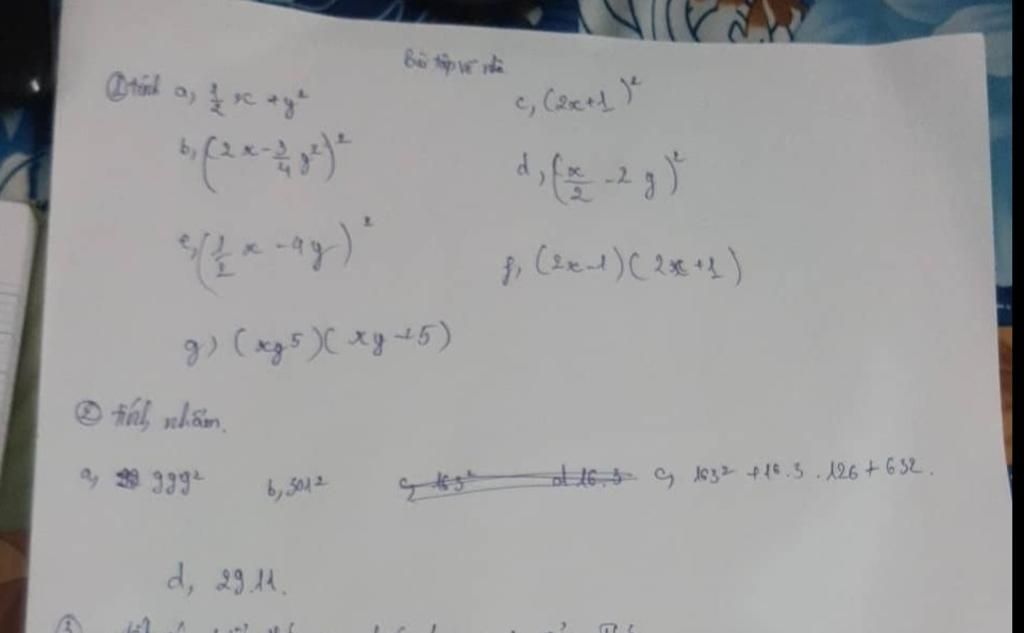 Bài tập về nhà
① tính a, 1/2 x + y² c, (2x+1)²
b, (2x - 3/4 y²)² d, (x/2 - 2y)²
e, (1/2 x - 4y)² f, (2x-1)(2x+1)
g) (xy5)(xy+5)
② tính nhẩm.
a, 999² b, 301² c, 163² d 16.3 c, 163² + 16.3.126 + 632.
d, 29.11.
③